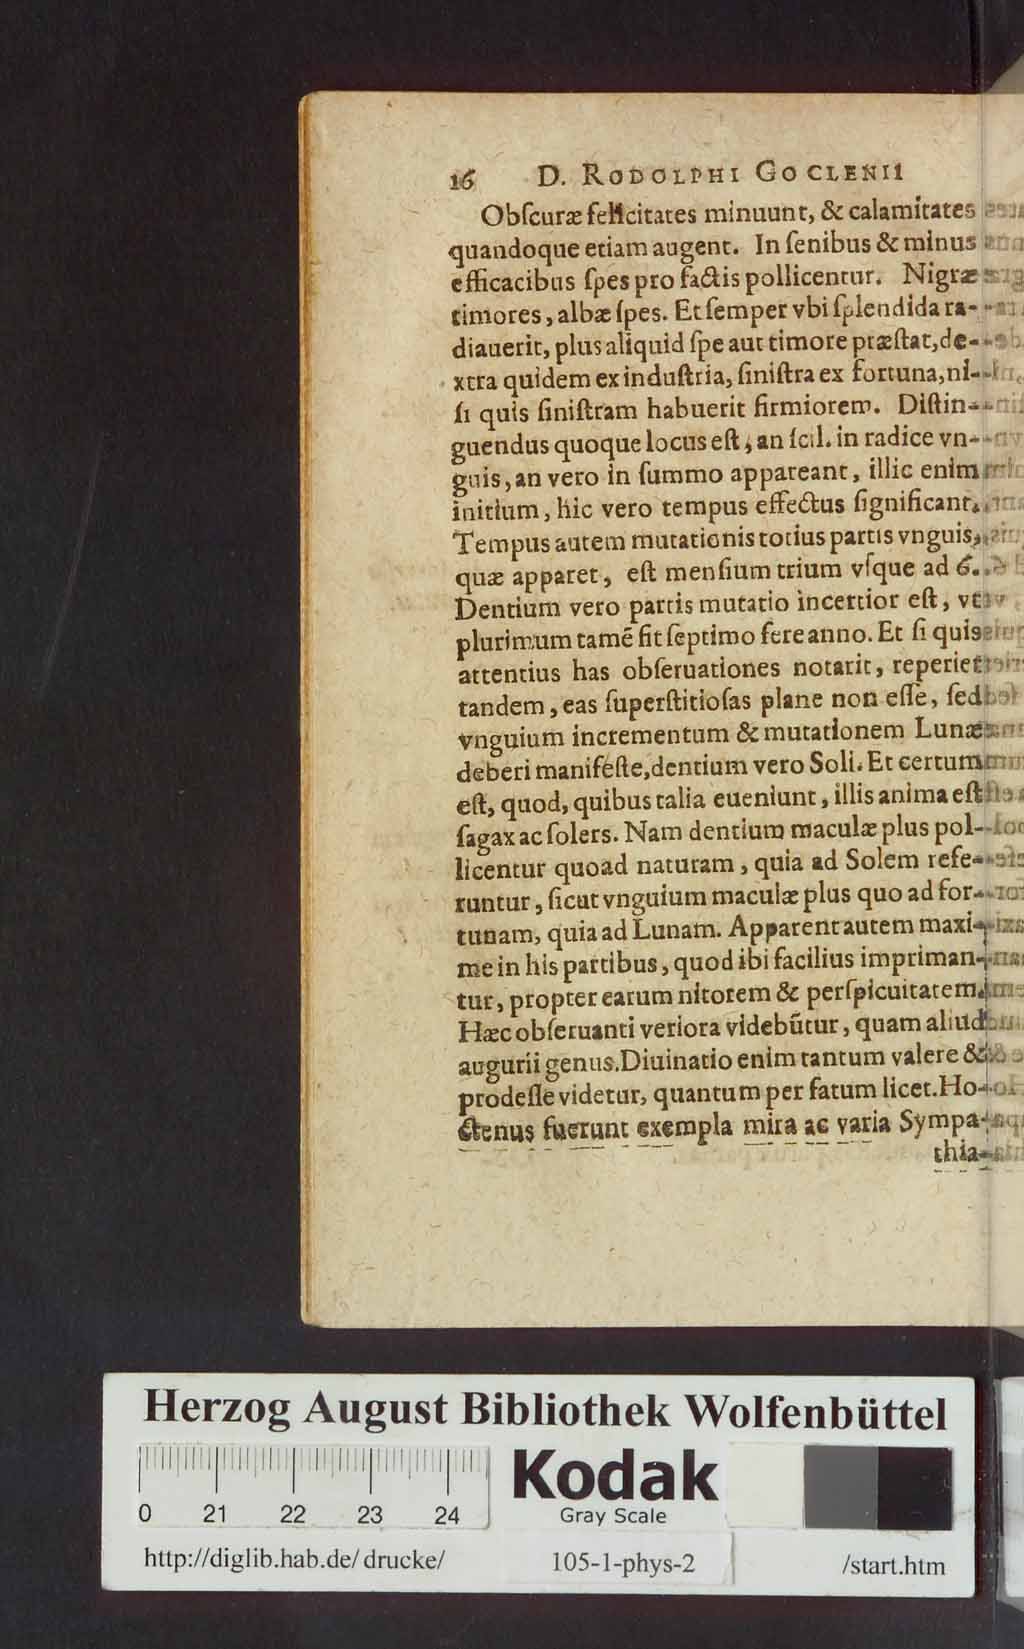 16 D. RODOLPHI GOCLENII
Obſcuræ felicitates minuunt, & calamitates
quandoque etiam augent. In ſenibus & minus
efficacibus ſpes pro factis pollicentur. Nigræ
timores, albæ ſpes. Et ſemper vbi ſplendida ra-
diauerit, plus aliquid ſpe aut timore præſtat, de-
xtra quidem ex induſtria, ſiniſtra ex fortuna, ni-
ſi quis ſiniſtram habuerit firmiorem. Diſtin-
guendus quoque locus eſt, an ſcil. in radice vn-
guis, an vero in ſummo appareant, illic enim
initium, hic vero tempus effectus ſignificant.
Tempus autem mutationis totius partis vnguis,
quæ apparet, eſt menſium trium vſque ad 6.
Dentium vero partis mutatio incertior eſt, vt
plurimum tamē fit ſeptimo fere anno. Et ſi quis
attentius has obſeruationes notarit, reperiet
tandem, eas ſuperſtitioſas plane non eſſe, ſed
vnguium incrementum & mutationem Lunæ
deberi manifeſte, dentium vero Soli. Et certum
eſt, quod, quibus talia eueniunt, illis anima eſt
ſagax ac ſolers. Nam dentium maculæ plus pol-
licentur quoad naturam, quia ad Solem refe-
runtur, ſicut vnguium maculæ plus quo ad for-
tunam, quia ad Lunam. Apparent autem maxi-
me in his partibus, quod ibi facilius impriman-
tur, propter earum nitorem & perſpicuitatem.
Hæc obſeruanti veriora videbūtur, quam aliud
augurii genus. Diuinatio enim tantum valere &
prodeſſe videtur, quantum per fatum licet. Ho-
ctenus fuerunt exempla mira ac varia Sympa-
thia-
Herzog August Bibliothek Wolfenbüttel
0 21 22 23 24
Kodak
Gray Scale
http://diglib.hab.de/drucke/ 105-1-phys-2 /start.htm